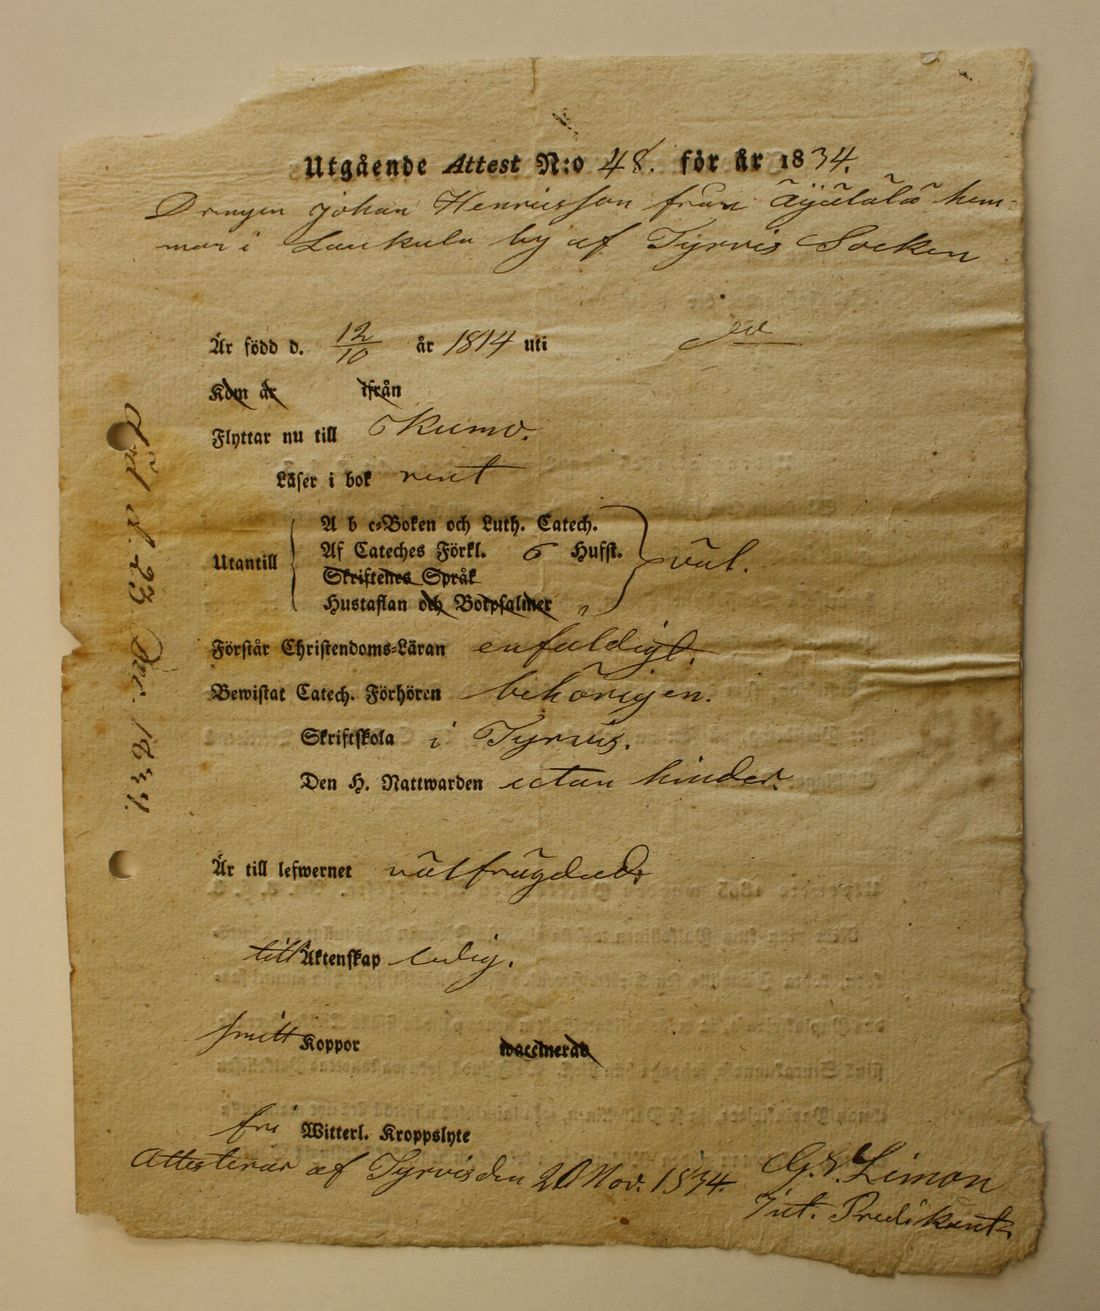 Utgående Attest N:o 48. för år 1834.
Drengen Johan Henriksson från Äijälälä hem-
man i Laukula by af Tyrvis Socken
Är född d. 12/10 år 1814 uti do
Kom år ifrån
Flyttar nu till Kumo.
Läser i bok rent
A b c-Boken och Luth. Catech.
Utantill Af Cateches Förkl. 6 Hufst. väl.
Skriftenes Språk
Hustaflan och Botpsalmer "
Förstår Christendoms-Läran enfaldigt.
Bewistat Catech. Förhören behörigen.
Skriftskola i Tyrvis.
Den H. Nattwarden utan hinder.
Är till lefwernet välfrägdad.
till Äktenskap ledig.
haft Koppor waccinerad
fri Witterl. Kroppslyte
Attesterar af Tyrvis den 20 Nov. 1834. G. Limon
Predikant
d. 23 1834.